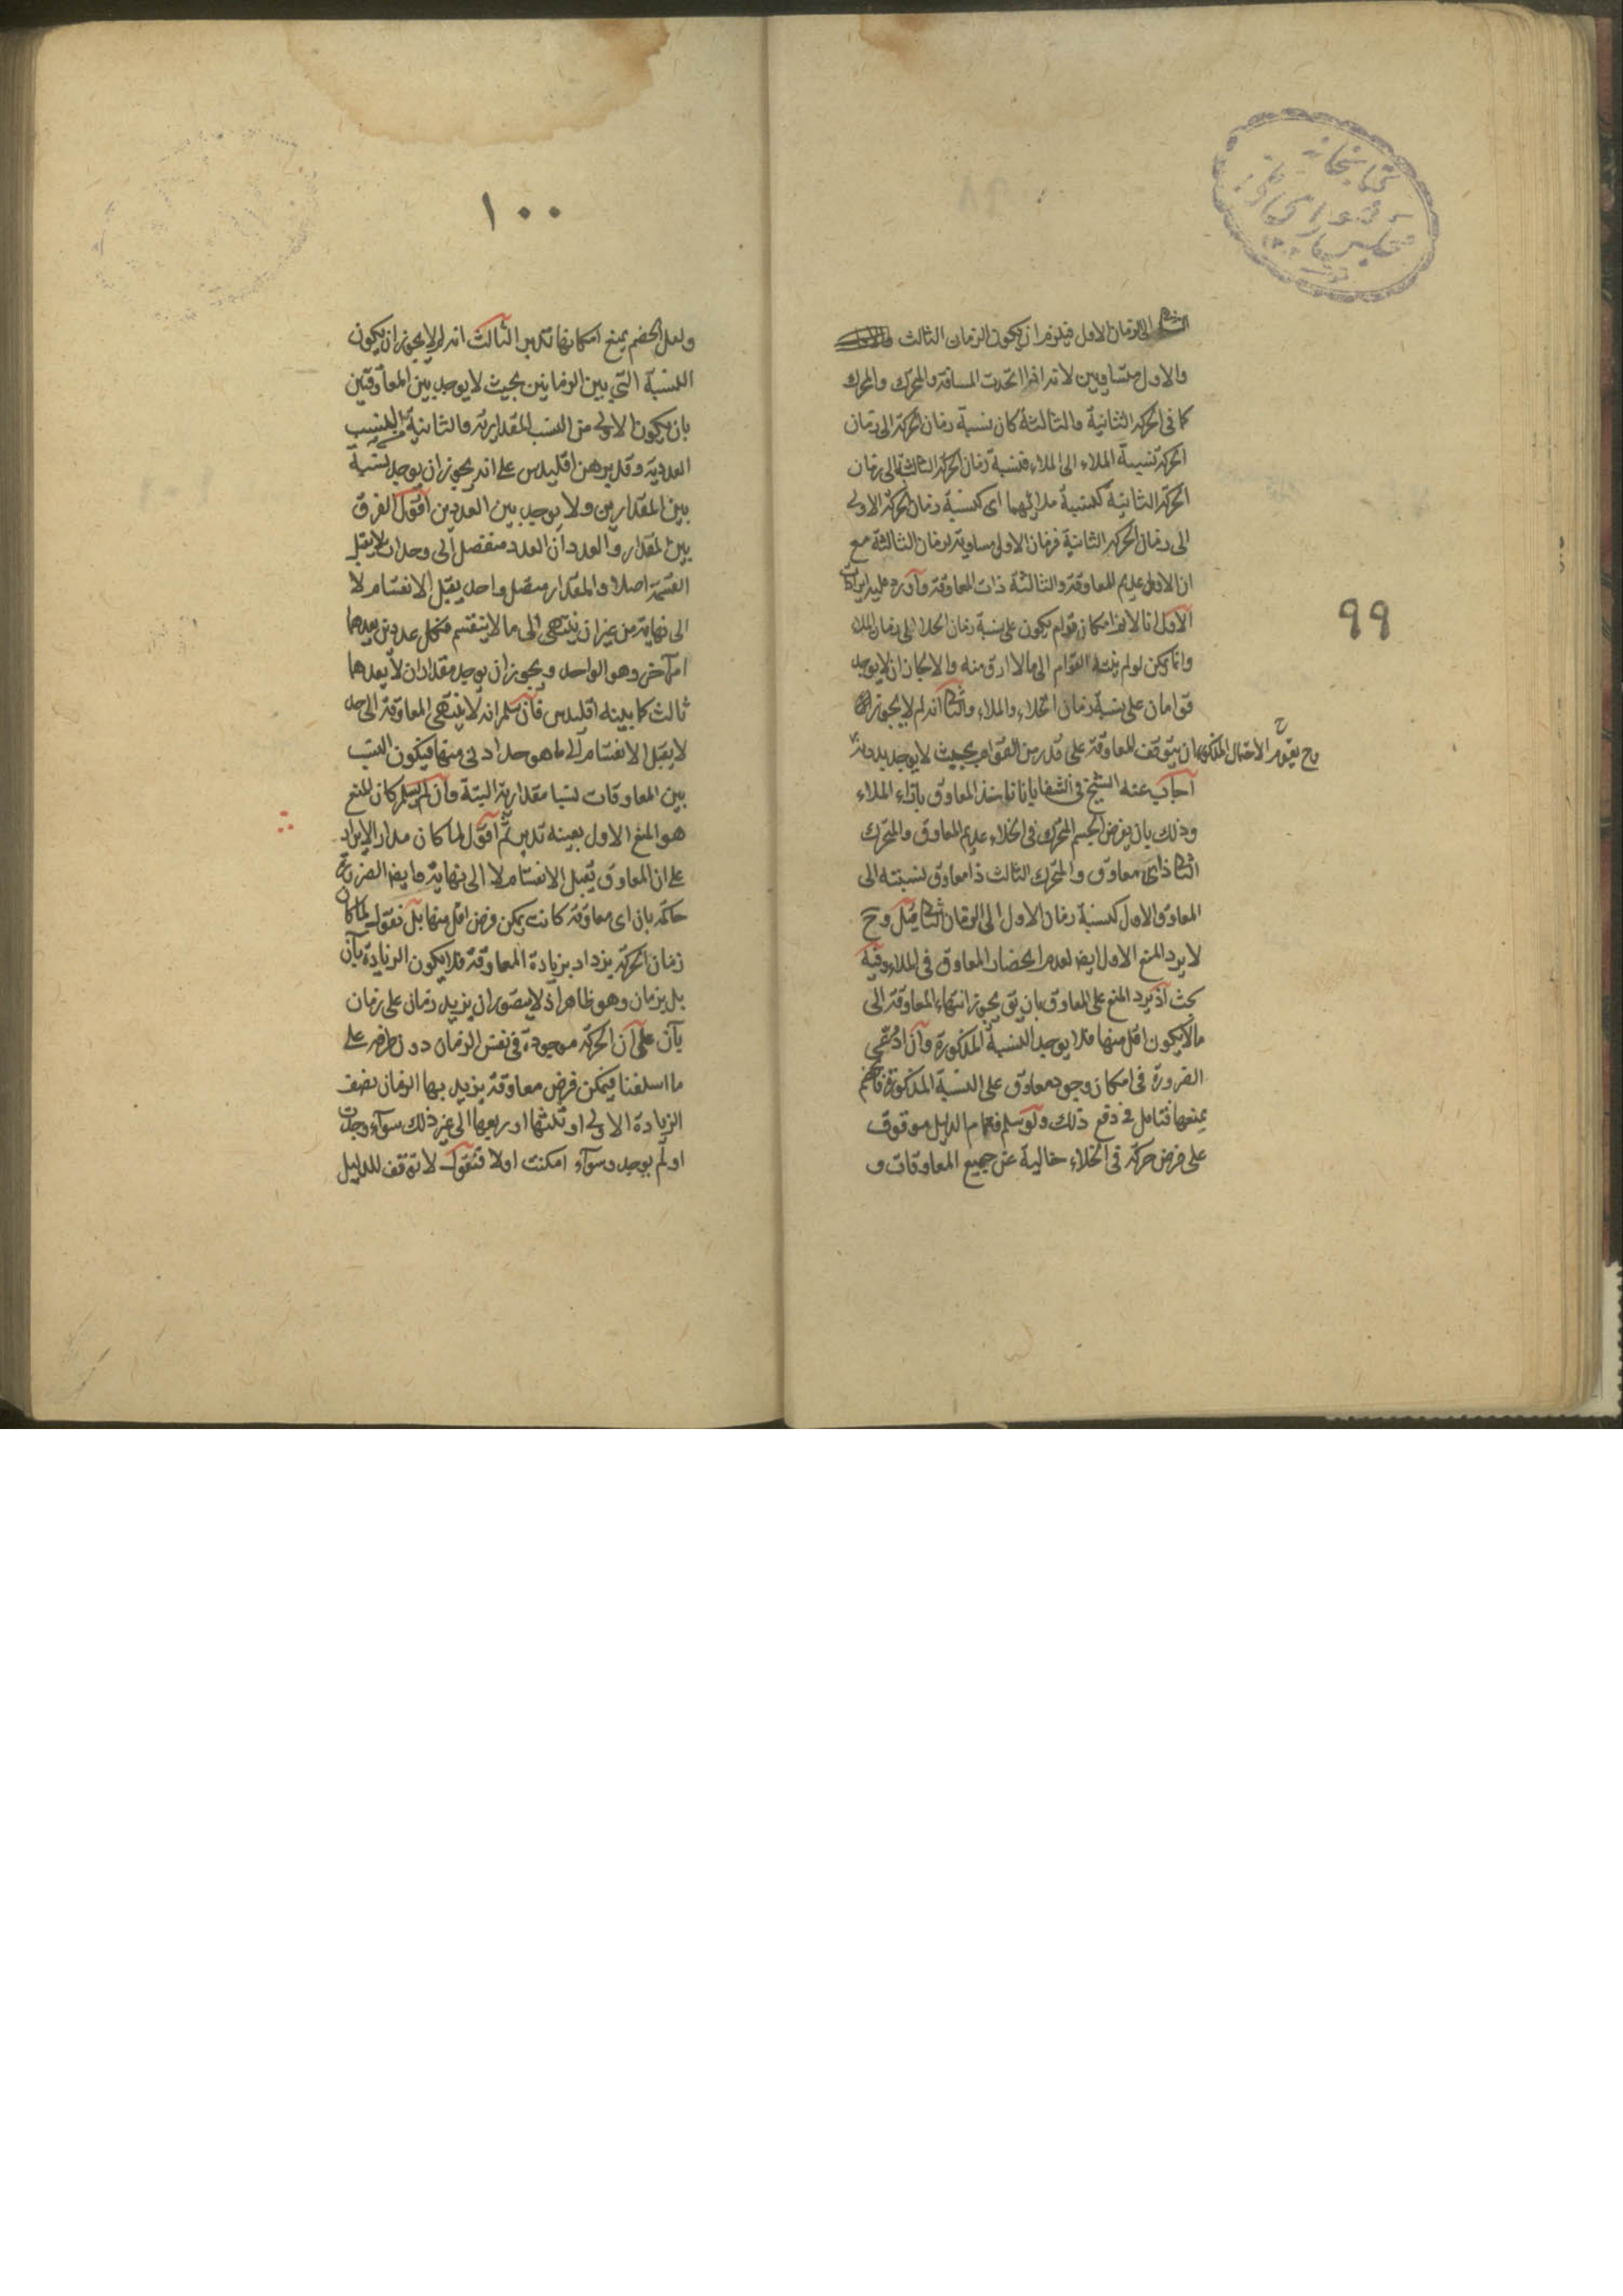 ٩٩
الى الزمان الاول فيلزم ان يكون الزمان الثالث
والاول متساويين لانه اذا اتحدت المسافة والمحرك والمحرك
كما فى الحركة الثانية والثالثة كان نسبة زمان الحركة الى زمان
الحركة نسبة الملاء الى الملاء فنسبة زمان الحركة الثالثة الى زمان
الحركة الثانية كنسبة ملائهما اى كنسبة زمان الحركة الاولى
الى زمان الحركة الثانية فزمان الاولى مساوية لزمان الثالثة مع
ان الاولى عديم المعاوقة والثالثة ذات المعاوقة واورد عليه ايرادات
الاول انا لانم امكان قوام يكون على نسبة زمان الخلا الى زمان الملاء
وانما يمكن لو لم ينته القوام الى ما لا ارق منه والا لجاز ان لا يوجد
قوامان على نسبة زمان الخلاء والملاء والثانى انه لم لا يجوز
ان يتوقف المعاوقة على قدر من القوام بحيث لا يوجد بدونه
وح يقوم الاحتمال المذكور
اجاب عنه الشيخ فى الشفا بانا ناخذ المعاوق بازاء الملاء
وذلك بان يفرض الجسم المتحرك فى الخلاء عديم المعاوق والمتحرك
الثانى ذا معاوق والمتحرك الثالث ذا معاوق نسبته الى
المعاوق الاول كنسبة زمان الاول الى الزمان الثانى قيل وح
لا يرد المنع الاول ايضا لعدم انحصار المعاوق فى الملاء وفيه
بحث اذ يرد المنع على المعاوق بان يق يجوز انتهاء المعاوقة الى
ما لا يكون اقل منها فلا يوجد النسبة المذكورة وان ادعى
الضرورة فى امكان وجود معاوق على النسبة المذكورة فالخصم
يمنعها فتامل فى دفع ذلك ولو سلم فتمام الدليل موقوف
على فرض حركة فى الخلاء خالية عن جميع المعاوقات و
١٠٠
ولعل الخصم يمنع امكانها تدبر الثالث انه لم لا يجوز ان يكون
النسبة التى بين الزمانين بحيث لا يوجد بين المعاوقتين
بان يكون الاولى من النسب المقدارية والثانية من النسب
العددية وقد برهن اقليدس على انه يجوز ان يوجد نسبة
بين المقدارين ولا يوجد بين العددين اقول الفرق
بين المقدار والعدد ان العدد منفصل الى وحدات لا يقبل
القسمة اصلا والمقدار متصل واحد يقبل الانقسام لا
الى نهاية من غير ان ينتهى الى ما لا ينقسم فكل عددين يعدهما
امر آخر وهو الواحد ويجوز ان يوجد مقداران لا يعدهما
ثالث كما بينه اقليدس فان سلم انه لا ينتهى المعاوقة الى حد
لا يقبل الانقسام الى ما هو حد ادنى منها فيكون النسب
بين المعاوقات نسبا مقدارية البتة وان لم يسلم كان المنع
هو المنع الاول بعينه تدبر ثم اقول لما كان مدار الايراد
على ان المعاوق يقبل الانقسام لا الى نهاية وايضا الضرورة
حاكمة بان اى معاوقة كانت يمكن فرض اقل منها بل نقول لما كان
زمان الحركة يزداد بزيادة المعاوقة فلا يكون الزيادة بآن
بل بزمان وهو ظاهر اذ لا يتصور ان يزيد زمان على زمان
بآن على ان الحركة موجودة فى نفس الزمان دون طرفه على
ما اسلفنا فيمكن فرض معاوقة يزيد بها الزمان نصف
الزيادة الاولى او ثلثها او ربعها الى غير ذلك سوآء وجدت
او لم يوجد وسوآء امكنت اولا فنقول لا توقف للدليل